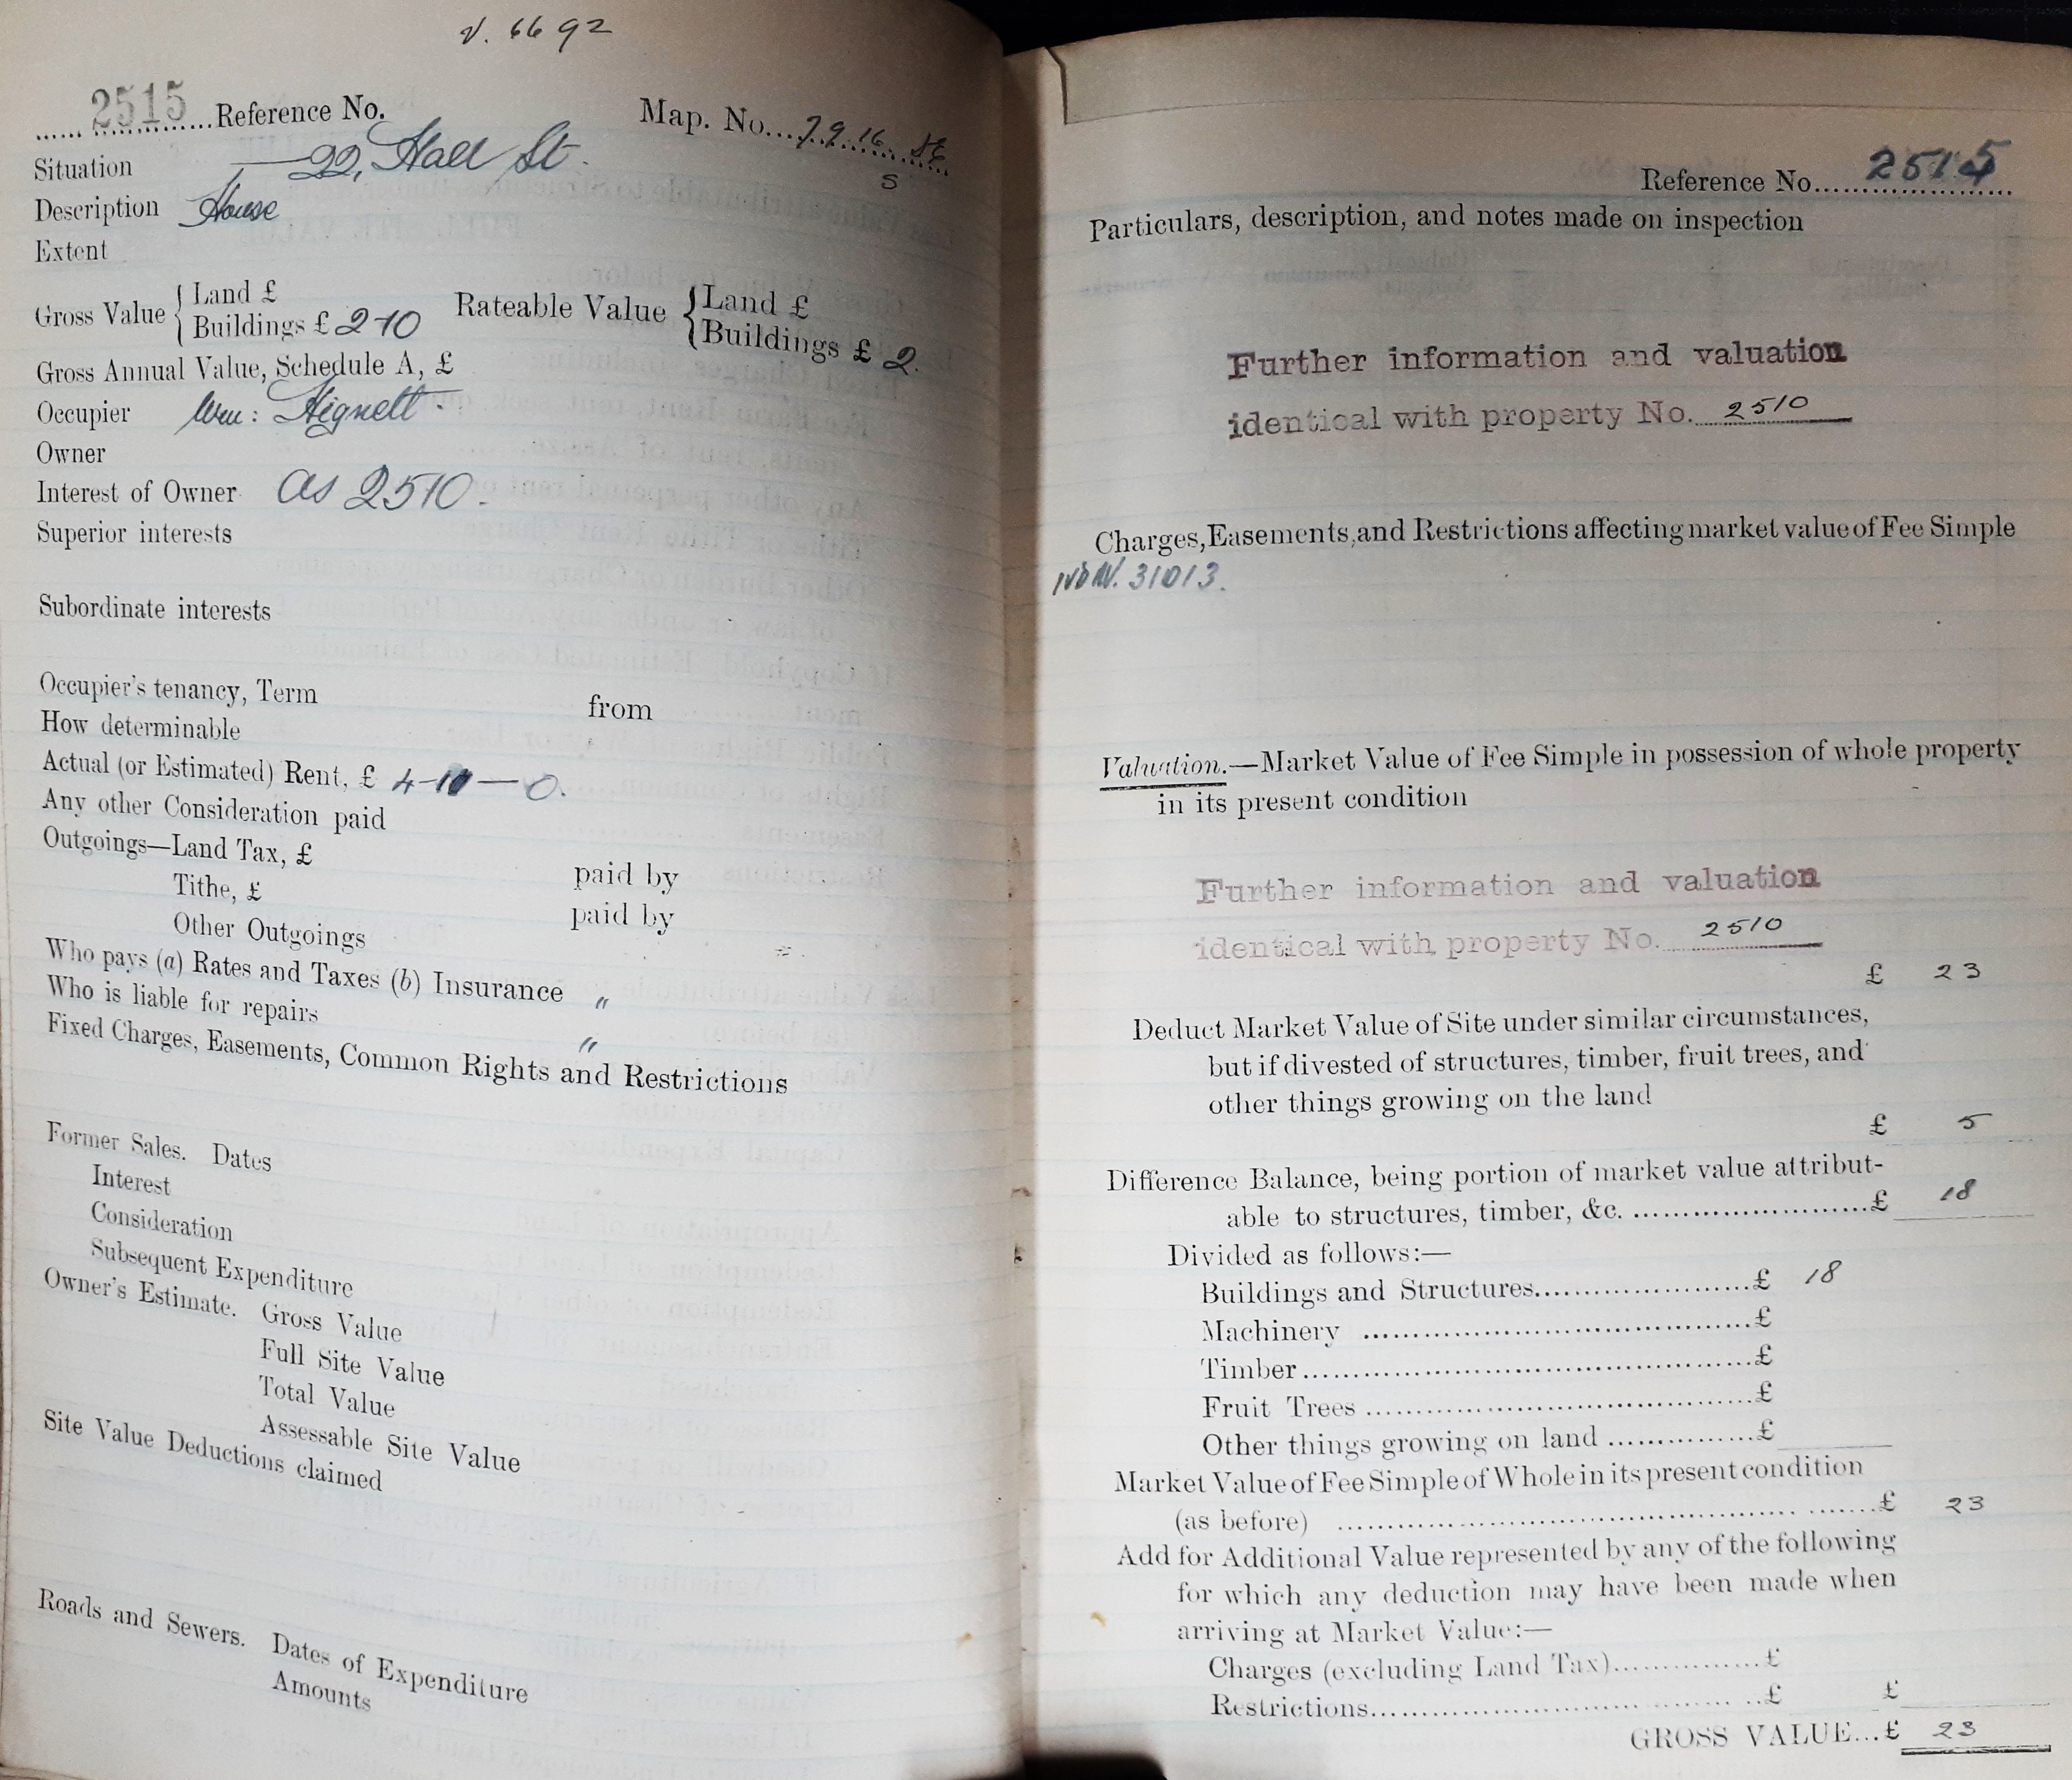 v. 6692
2515 Reference No. Map. No. 79.16. SE
S
Situation 22, Hall St.
Description House
Extent
Gross Value { Land £
Buildings £ 2-10 Rateable Value { Land £
Buildings £ 2.
Gross Annual Value, Schedule A, £
Occupier Wm: Hignett.
Owner
Interest of Owner as 2510.
Superior interests
Subordinate interests
Occupier's tenancy, Term from
How determinable
Actual (or Estimated) Rent, £ 4-10-0.
Any other Consideration paid
Outgoings—Land Tax, £ paid by
Tithe, £ paid by
Other Outgoings
Who pays (a) Rates and Taxes (b) Insurance "
Who is liable for repairs "
Fixed Charges, Easements, Common Rights and Restrictions
Former Sales. Dates
Interest
Consideration
Subsequent Expenditure
Owner's Estimate. Gross Value
Full Site Value
Total Value
Assessable Site Value
Site Value Deductions claimed
Roads and Sewers. Dates of Expenditure
Amounts
Reference No. 2515
Particulars, description, and notes made on inspection
Further information and valuation
identical with property No. 2510
Charges, Easements, and Restrictions affecting market value of Fee Simple
31013.
Valuation.—Market Value of Fee Simple in possession of whole property
in its present condition
Further information and valuation
identical with property No. 2510
£ 23
Deduct Market Value of Site under similar circumstances,
but if divested of structures, timber, fruit trees, and
other things growing on the land
£ 5
Difference Balance, being portion of market value attribut-
able to structures, timber, &c. £ 18
Divided as follows:—
Buildings and Structures £ 18
Machinery £
Timber £
Fruit Trees £
Other things growing on land £
Market Value of Fee Simple of Whole in its present condition
(as before) £ 23
Add for Additional Value represented by any of the following
for which any deduction may have been made when
arriving at Market Value:—
Charges (excluding Land Tax) £
Restrictions £ £
GROSS VALUE...£ 23